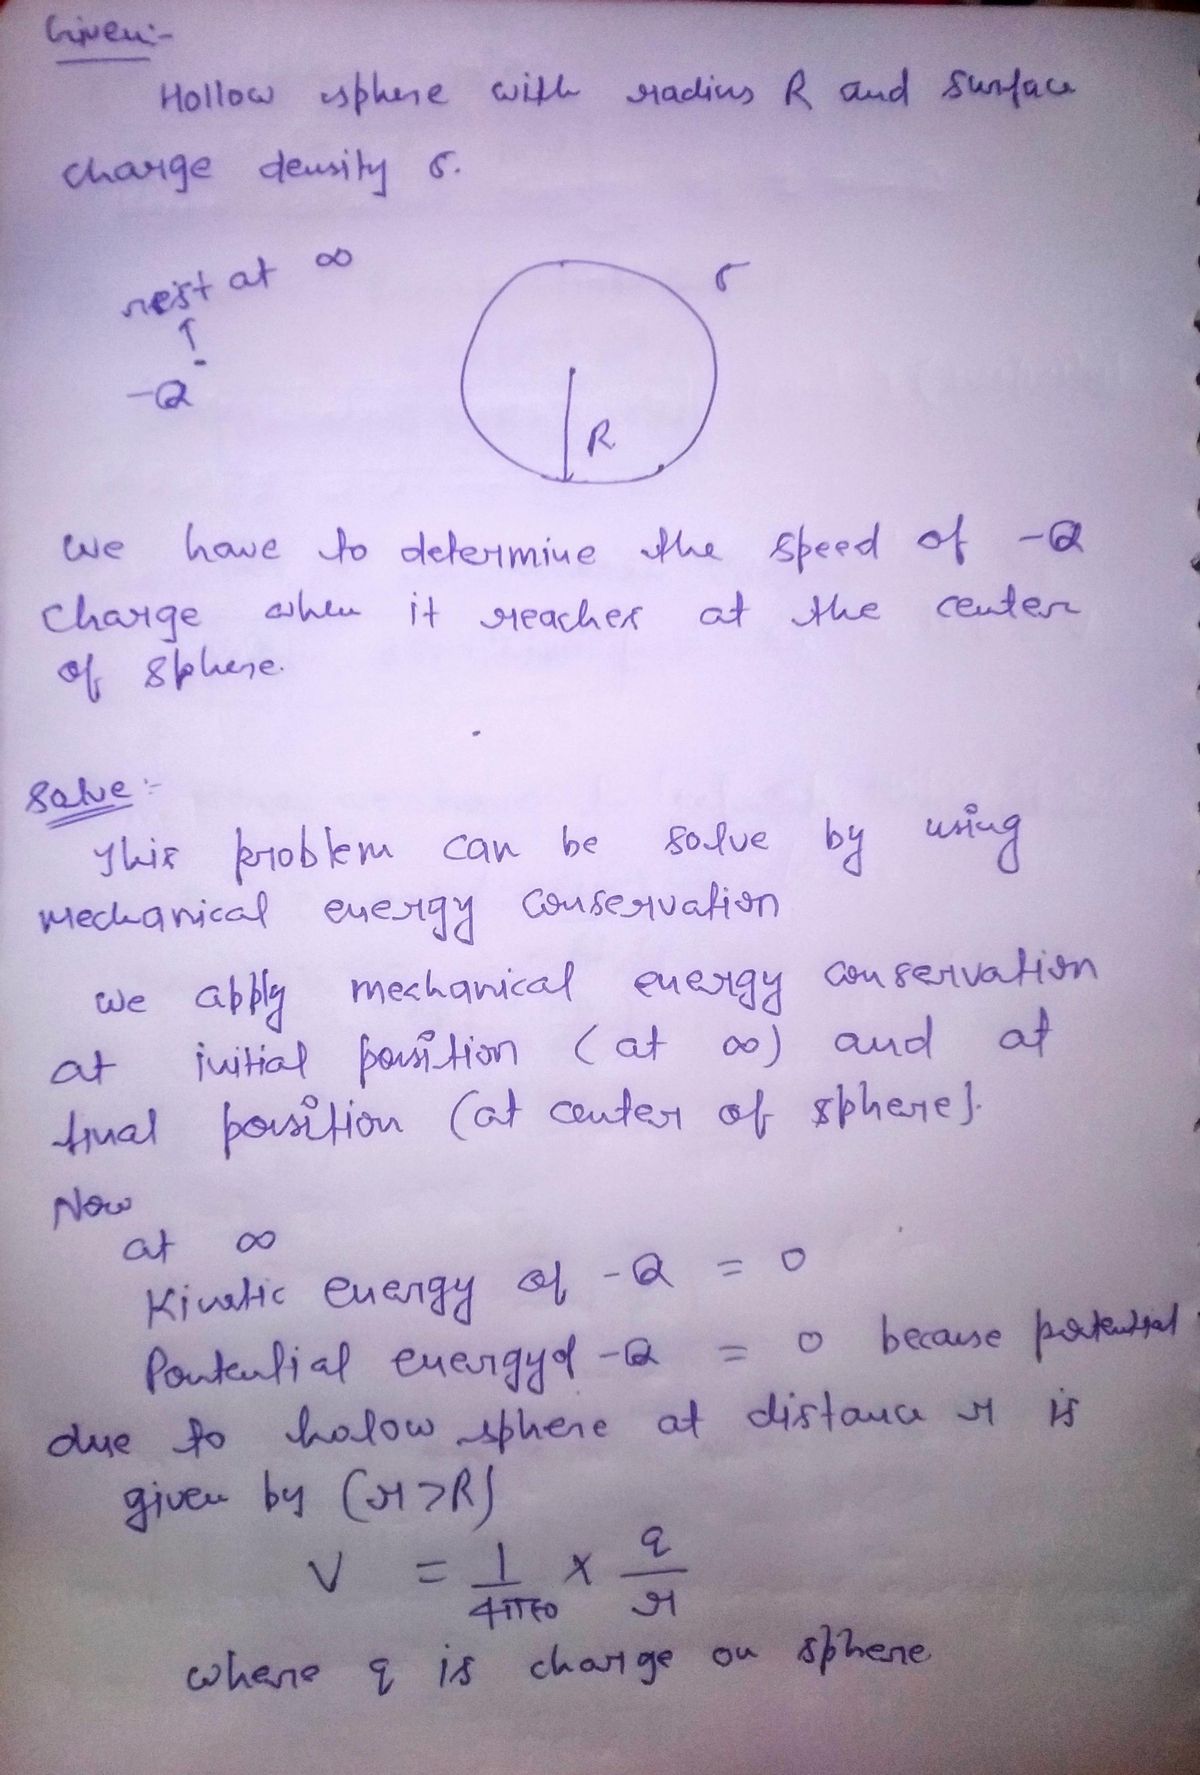 Given:-
Hollow sphere with radius R and surface
charge density σ.
rest at ∞
σ
-Q
R
we have to determine the speed of -Q
charge when it reaches at the center
of sphere.
Solve:-
This problem can be solve by using
mechanical energy conservation
we apply mechanical energy conservation
at initial position (at ∞) and at
final position (at center of sphere).
Now
at ∞
Kinetic energy of -Q = 0
Pontential energy of -Q = 0 because potential
due to holow sphere at distance r is
given by (r>R)
V = 1/4πε0 × q/r
where q is charge on sphere